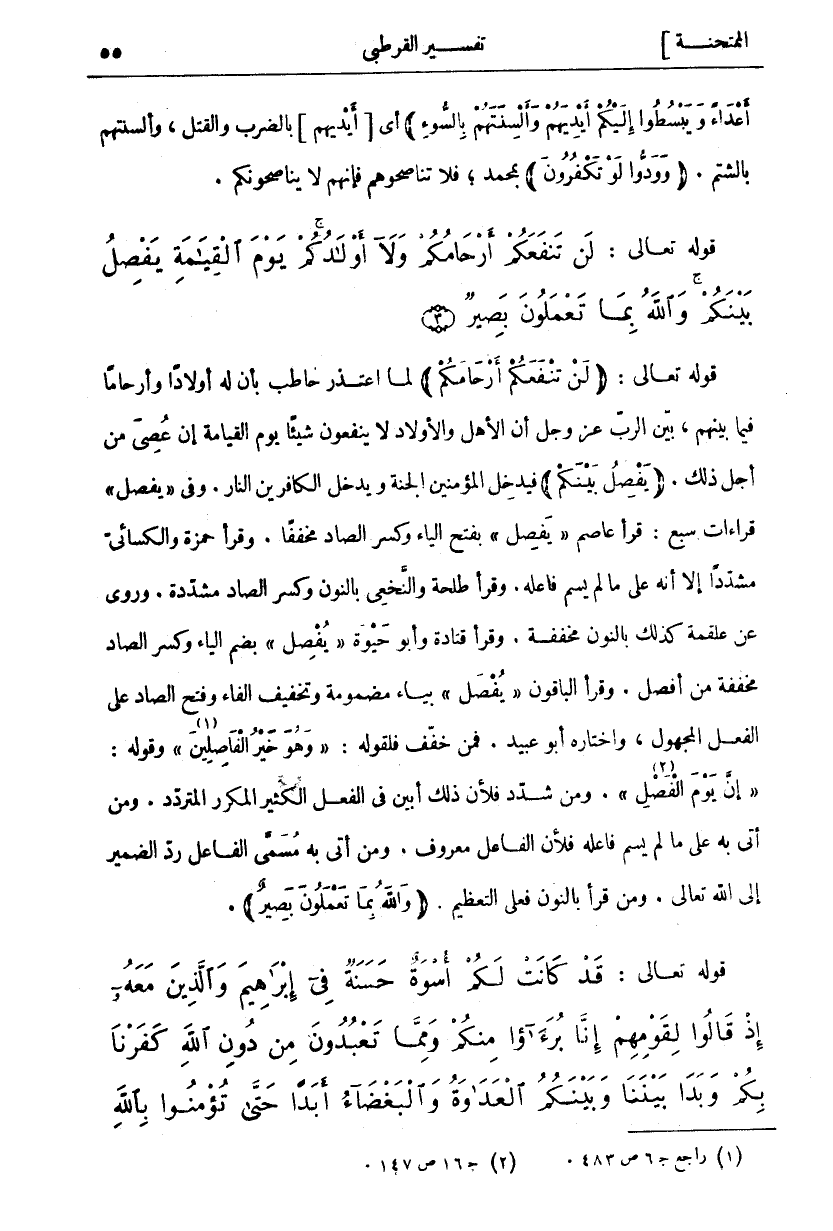 الممتحنـــة ]
تفســـير القرطبى
٥٥
أَعْدَاءً وَيَبْسُطُوا إِلَيْكُمْ أَيْدِيَهُمْ وَأَلْسِنَتَهُمْ بِالسُّوءِ ﴾ أى [ أَيْديهم ] بالضرب والقتل ، وألسنتهم
بالشتم . ﴿ وَوَدُّوا لَوْ تَكْفُرُونَ ﴾ بمحمد ؛ فلا تناصحوهم فإنهم لا يناصحونكم .
قوله تعـالى : لَن تَنفَعَكُمْ أَرْحَامُكُمْ وَلَآ أَوْلَـٰدُكُمْ ۚ يَوْمَ ٱلْقِيَـٰمَةِ يَفْصِلُ
بَيْنَكُمْ ۚ وَٱللَّهُ بِمَـا تَعْمَلُونَ بَصِيرٌ ﴿٣﴾
قوله تعـالى : ﴿ لَنْ تَنْفَعَكُمْ أَرْحَامُكُمْ ﴾ لمـا اعتـذر حاطب بأن له أولادًا وأرحامًا
فيما بينهم ، بيّن الربّ عز وجل أن الأهل والأولاد لا ينفعون شيئًا يوم القيامة إن عُصِىَ من
أجل ذلك . ﴿ يَفْصِلُ بَيْنَكُمْ ﴾ فيدخل المؤمنين الجنة ويدخل الكافرين النار . وفى « يفصل »
قراءات سبع : قرأ عاصم « يَفصِل » بفتح الياء وكسر الصاد مخففًا . وقرأ حمزة والكسائىّ
مشدّدًا إلا أنه على ما لم يسم فاعله. وقرأ طلحة والنَّخعِى بالنون وكسر الصاد مشدّدة . وروى
عن علقمة كذلك بالنون مخففـة . وقرأ قتادة وأبو حَيْوَة « يُفْصِل » بضم الياء وكسر الصاد
مخففة من أفصل . وقرأ الباقون « يُفْصَل » بيـاء مضمومة وتخفيف الفاء وفتح الصاد على
الفعـل المجهول ، واختاره أبو عبيد . فمن خفّف فلقوله : « وَهُوَ خَيْرُ الْفَاصِلِينَ (١) » وقوله :
« إِنَّ يَوْمَ الْفَصْلِ (٢) » . ومن شـدّد فلأن ذلك أبين فى الفعـل الكثير المكرر المتردّد . ومن
أتى به على ما لم يسم فاعله فلأن الفـاعل معروف . ومن أتى به مُسَمَّى الفـاعل ردّ الضمير
إلى الله تعالى . ومن قرأ بالنون فعلى التعظيم . ﴿ وَاللَّهُ بِمَا تَعْمَلُونَ بَصِيرٌ ﴾ .
قوله تعـالى : قَدْ كَانَتْ لَـكُمْ أُسْوَةٌ حَسَنَةٌ فِىٓ إِبْرَٰهِيمَ وَٱلَّذِينَ مَعَهُۥٓ
إِذْ قَالُوا لِقَوْمِهِمْ إِنَّا بُرَءَٰٓؤُا مِنكُمْ وَمِمَّا تَعْبُدُونَ مِن دُونِ ٱللَّهِ كَفَرْنَا
بِكُمْ وَبَدَا بَيْنَنَا وَبَيْنَـكُمُ ٱلْعَدَٰوَةُ وَٱلْبَغْضَآءُ أَبَدًا حَتَّىٰ تُؤْمِنُـوا بِٱللَّهِ
(١) راجع جـ ٦ ص ٤٨٣ .
(٢) جـ ١٦ ص ١٤٧ .